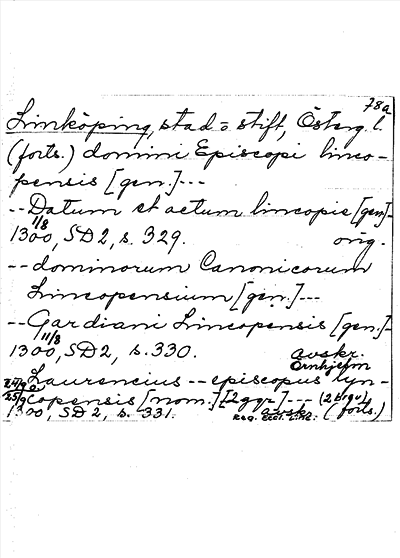 78a
Linköping, stad o stift, Österg. l.
(forts.) domini Episcopi linco-
pensis [gen.]---
-- Datum et actum lincopie [gen]-
1/8
1300, SD2, s. 329. orig.
-- dominorum Canonicorum
Lincopensium [gen.]---
-- Gardiani Lincopensis [gen.]-
11/8
1300, SD2, s. 330. avskr.
Örnhjelm
24/9 Laurencius -- episcopus lyn-
25/9 copensis [nom.] [2 ggr] --- (2 brev)
1300, SD2, s. 331. avskr. (forts.)